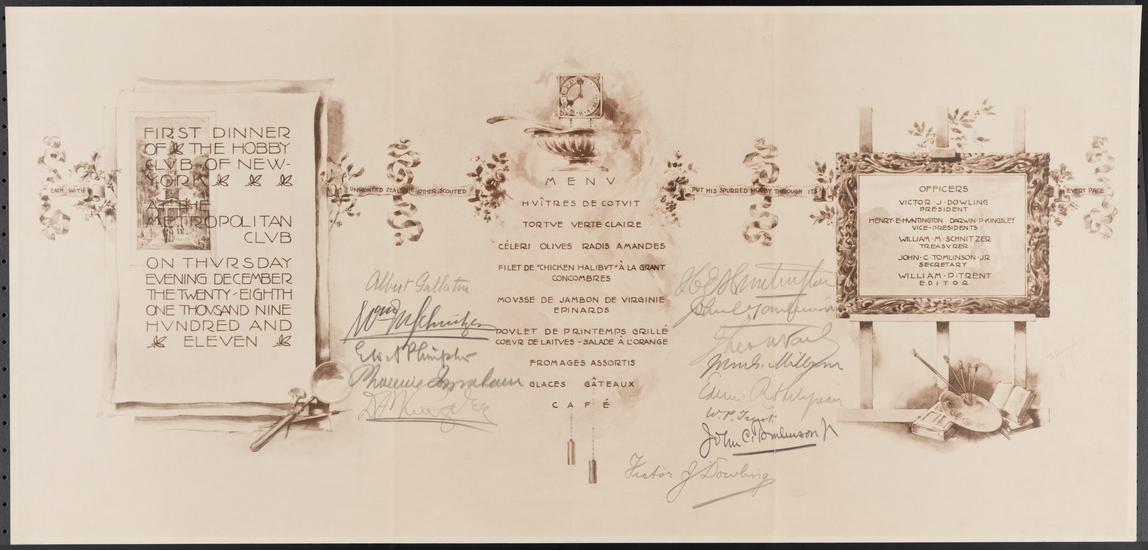 EACH WITH
FIRST DINNER
OF THE HOBBY
CLVB OF NEW-
YORK
AT THE
METROPOLITAN
CLVB
ON THVRSDAY
EVENING DECEMBER
THE TWENTY-EIGHTH
ONE THOVSAND NINE
HVNDRED AND
ELEVEN
UNWONTED ZEAL THE OTHER SCOUTED
MENV
HVÎTRES DE COTVIT
TORTVE VERTE CLAIRE
CÉLERI OLIVES RADIS AMANDES
FILET DE "CHICKEN HALIBVT" À LA GRANT
CONCOMBRES
MOVSSE DE JAMBON DE VIRGINIE
EPINARDS
POVLET DE PRINTEMPS GRILLÉ
COEVR DE LAITVES - SALADE À L'ORANGE
FROMAGES ASSORTIS
GLACES GÂTEAUX
CAFÉ
Albert Gallatin
Wm M Schnitzer
Phoenix Ingraham
H E Huntington
Edw. Roth
W. P. Trent
John C. Tomlinson Jr
Victor J Dowling
PUT HIS SPURRED HOBBY THROUGH ITS
OFFICERS
VICTOR · J · DOWLING
PRESIDENT
HENRY · E · HVNTINGTON DARWIN · P · KINGSLEY
VICE-PRESIDENTS
WILLIAM · M · SCHNITZER
TREASVRER
JOHN · C · TOMLINSON · JR
SECRETARY
WILLIAM · P · TRENT
EDITOR
EVERY PACE